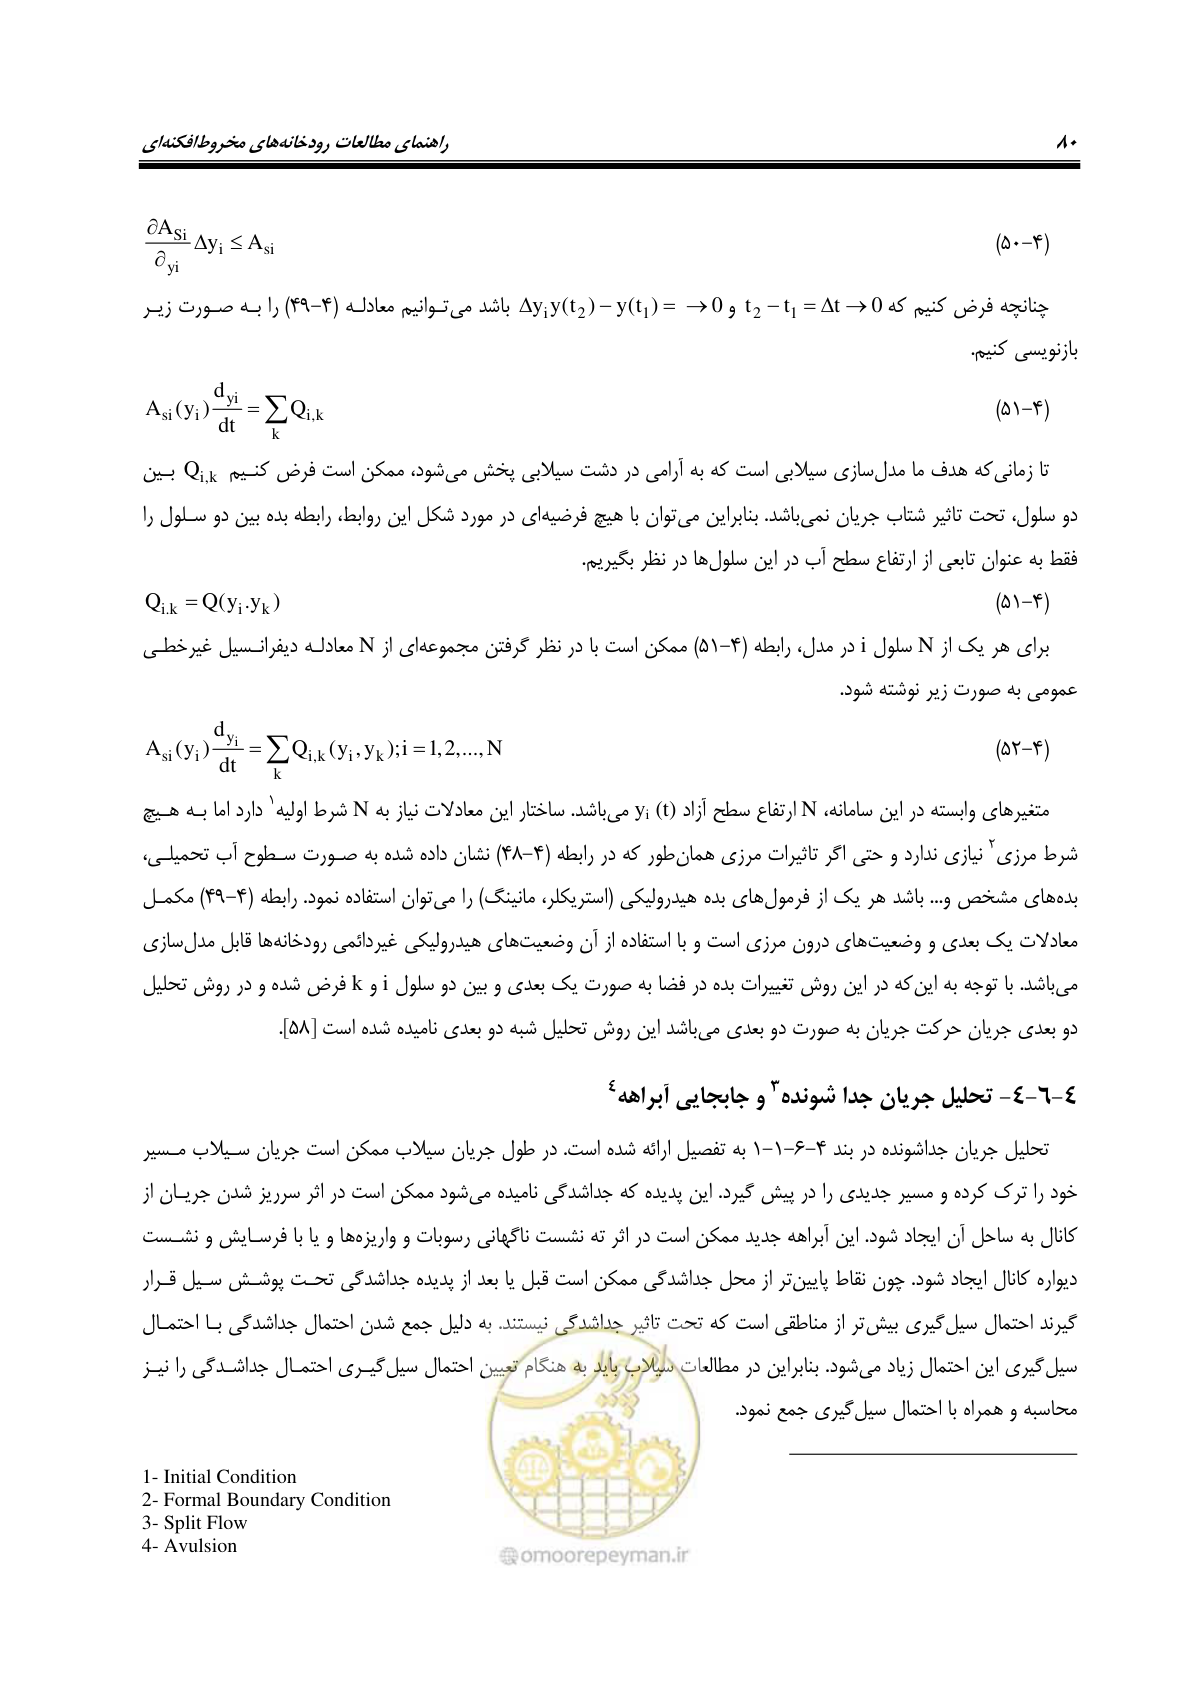 ۸۰ راهنمای مطالعات رودخانه‌های مخروط‌افکنه‌ای
∂A_Si/∂_yi Δy_i ≤ A_si (۴-۵۰)
چنانچه فرض کنیم که t_2 − t_1 = Δt → 0 و Δy_i y(t_2) − y(t_1) = → 0 باشد می‌توانیم معادله (۴-۴۹) را به صورت زیر
بازنویسی کنیم.
A_si(y_i) d_yi/dt = ∑_k Q_i,k (۴-۵۱)
تا زمانی‌که هدف ما مدل‌سازی سیلابی است که به آرامی در دشت سیلابی پخش می‌شود، ممکن است فرض کنیم Q_i,k بین
دو سلول، تحت تاثیر شتاب جریان نمی‌باشد. بنابراین می‌توان با هیچ فرضیه‌ای در مورد شکل این روابط، رابطه بده بین دو سلول را
فقط به عنوان تابعی از ارتفاع سطح آب در این سلول‌ها در نظر بگیریم.
Q_i.k = Q(y_i.y_k) (۴-۵۱)
برای هر یک از N سلول i در مدل، رابطه (۴-۵۱) ممکن است با در نظر گرفتن مجموعه‌ای از N معادله دیفرانسیل غیرخطی
عمومی به صورت زیر نوشته شود.
A_si(y_i) d_y_i/dt = ∑_k Q_i,k(y_i, y_k); i = 1, 2,..., N (۴-۵۲)
متغیرهای وابسته در این سامانه، N ارتفاع سطح آزاد y_i (t) می‌باشد. ساختار این معادلات نیاز به N شرط اولیه۱ دارد اما به هیچ
شرط مرزی۲ نیازی ندارد و حتی اگر تاثیرات مرزی همان‌طور که در رابطه (۴-۴۸) نشان داده شده به صورت سطوح آب تحمیلی،
بده‌های مشخص و... باشد هر یک از فرمول‌های بده هیدرولیکی (استریکلر، مانینگ) را می‌توان استفاده نمود. رابطه (۴-۴۹) مکمل
معادلات یک بعدی و وضعیت‌های درون مرزی است و با استفاده از آن وضعیت‌های هیدرولیکی غیردائمی رودخانه‌ها قابل مدل‌سازی
می‌باشد. با توجه به این‌که در این روش تغییرات بده در فضا به صورت یک بعدی و بین دو سلول i و k فرض شده و در روش تحلیل
دو بعدی جریان حرکت جریان به صورت دو بعدی می‌باشد این روش تحلیل شبه دو بعدی نامیده شده است [۵۸].
۴-۶-۴- تحلیل جریان جدا شونده۳ و جابجایی آبراهه۴
تحلیل جریان جداشونده در بند ۴-۶-۱-۱ به تفصیل ارائه شده است. در طول جریان سیلاب ممکن است جریان سیلاب مسیر
خود را ترک کرده و مسیر جدیدی را در پیش گیرد. این پدیده که جداشدگی نامیده می‌شود ممکن است در اثر سرریز شدن جریان از
کانال به ساحل آن ایجاد شود. این آبراهه جدید ممکن است در اثر ته نشست ناگهانی رسوبات و واریزه‌ها و یا با فرسایش و نشست
دیواره کانال ایجاد شود. چون نقاط پایین‌تر از محل جداشدگی ممکن است قبل یا بعد از پدیده جداشدگی تحت پوشش سیل قرار
گیرند احتمال سیل‌گیری بیش‌تر از مناطقی است که تحت تاثیر جداشدگی نیستند. به دلیل جمع شدن احتمال جداشدگی با احتمال
سیل‌گیری این احتمال زیاد می‌شود. بنابراین در مطالعات سیلاب باید به هنگام تعیین احتمال سیل‌گیری احتمال جداشدگی را نیز
محاسبه و همراه با احتمال سیل‌گیری جمع نمود.
1- Initial Condition
2- Formal Boundary Condition
3- Split Flow
4- Avulsion
امور پیمان
@omoorepeyman.ir